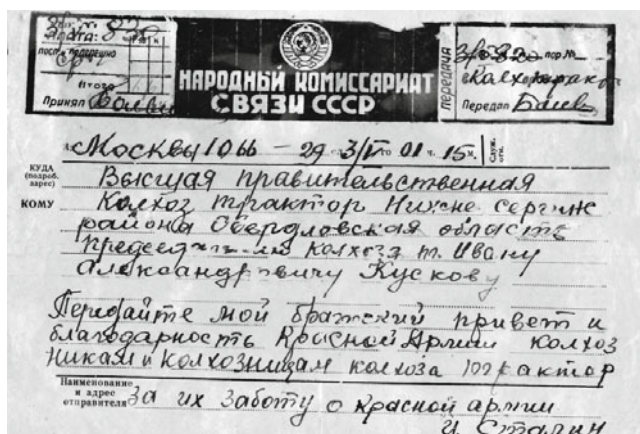 Плата:
Принял
НАРОДНЫЙ КОМИССАРИАТ
СВЯЗИ СССР
ПЕРЕДАЧА
Передал Баев
Москвы 1066 – 29 01 ч. 15 м.
КУДА
(подроб.
адрес)
Высшая правительственная
КОМУ
Колхоз трактор Нижне Сергиж
района Свердловская область
председателю колхоза т. Ивану
Александровичу Кускову
Передайте мой братский привет и
благодарность Красной Армии колхоз
никам и колхозницам колхоза трактор
Наименование
и адрес
отправителя
за их заботу о красной армии
И Сталин